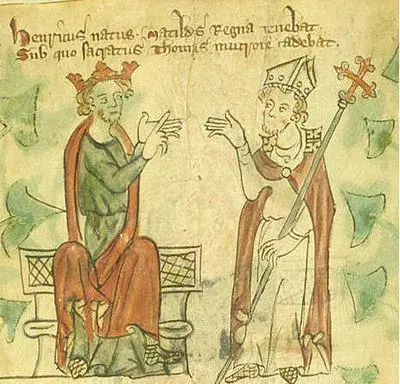 Henricus natus . Matildis Regna tenebat .
Sub quo sacratus Thomas mucrone cadebat .